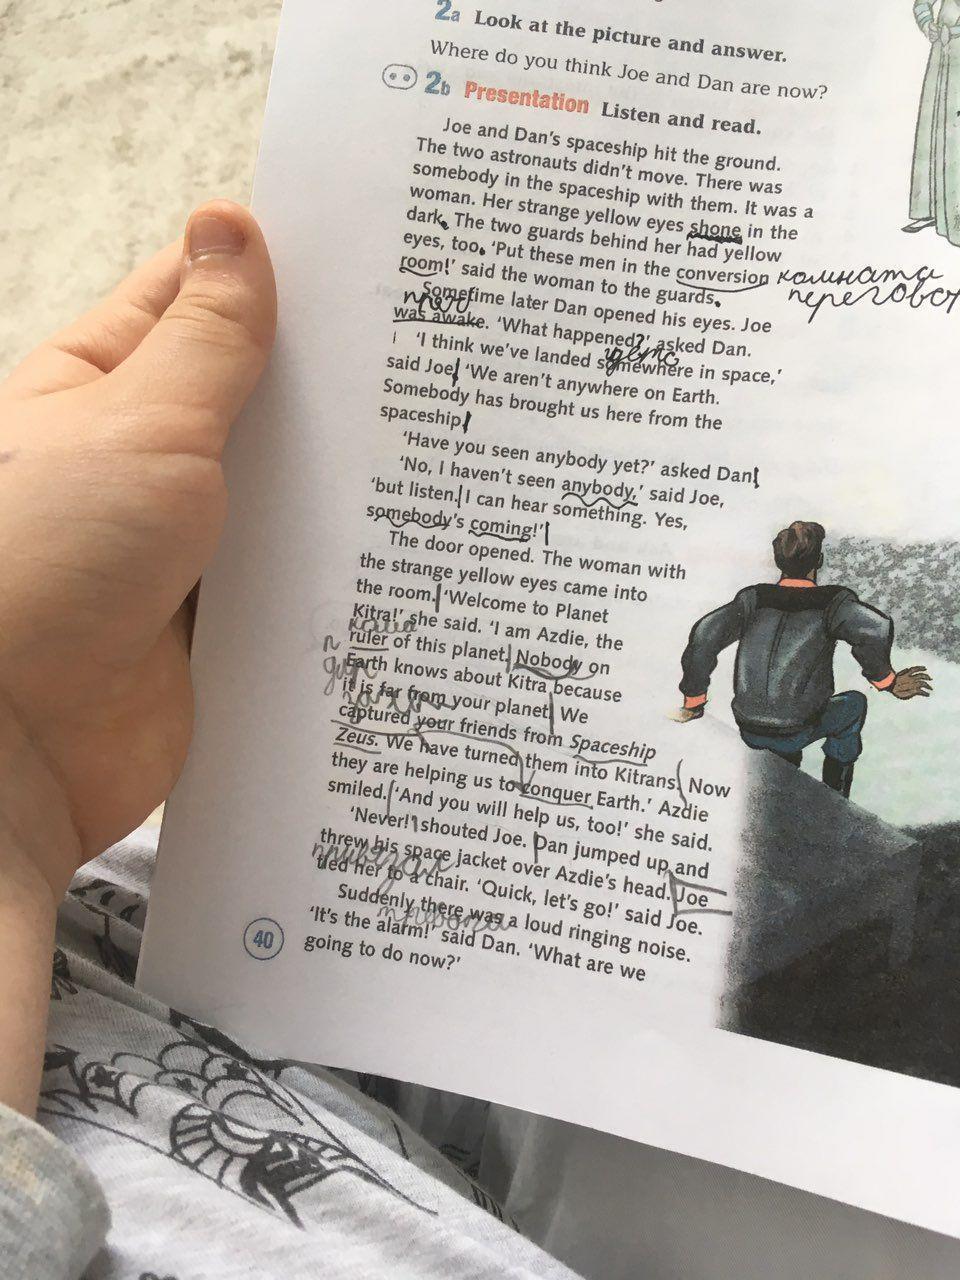 2a Look at the picture and answer.
Where do you think Joe and Dan are now?
2b Presentation Listen and read.
Joe and Dan's spaceship hit the ground.
The two astronauts didn't move. There was
somebody in the spaceship with them. It was a
woman. Her strange yellow eyes shone in the
dark. The two guards behind her had yellow
eyes, too. 'Put these men in the conversion комната
room!' said the woman to the guards. перегово
Sometime later Dan opened his eyes. Joe
was awake. 'What happened?' asked Dan.
'I think we've landed somewhere in space,'
said Joe. 'We aren't anywhere on Earth.
Somebody has brought us here from the
spaceship.'
'Have you seen anybody yet?' asked Dan.
'No, I haven't seen anybody,' said Joe,
'but listen. I can hear something. Yes,
somebody's coming!'
The door opened. The woman with
the strange yellow eyes came into
the room. 'Welcome to Planet
Kitra!' she said. 'I am Azdie, the
ruler of this planet. Nobody on
Earth knows about Kitra because
it is far from your planet. We
captured your friends from Spaceship
Zeus. We have turned them into Kitrans. Now
they are helping us to conquer Earth.' Azdie
smiled. 'And you will help us, too!' she said.
'Never!' shouted Joe. Dan jumped up and
threw his space jacket over Azdie's head. Joe
tied her to a chair. 'Quick, let's go!' said Joe.
Suddenly there was a loud ringing noise.
'It's the alarm!' said Dan. 'What are we
going to do now?'
40